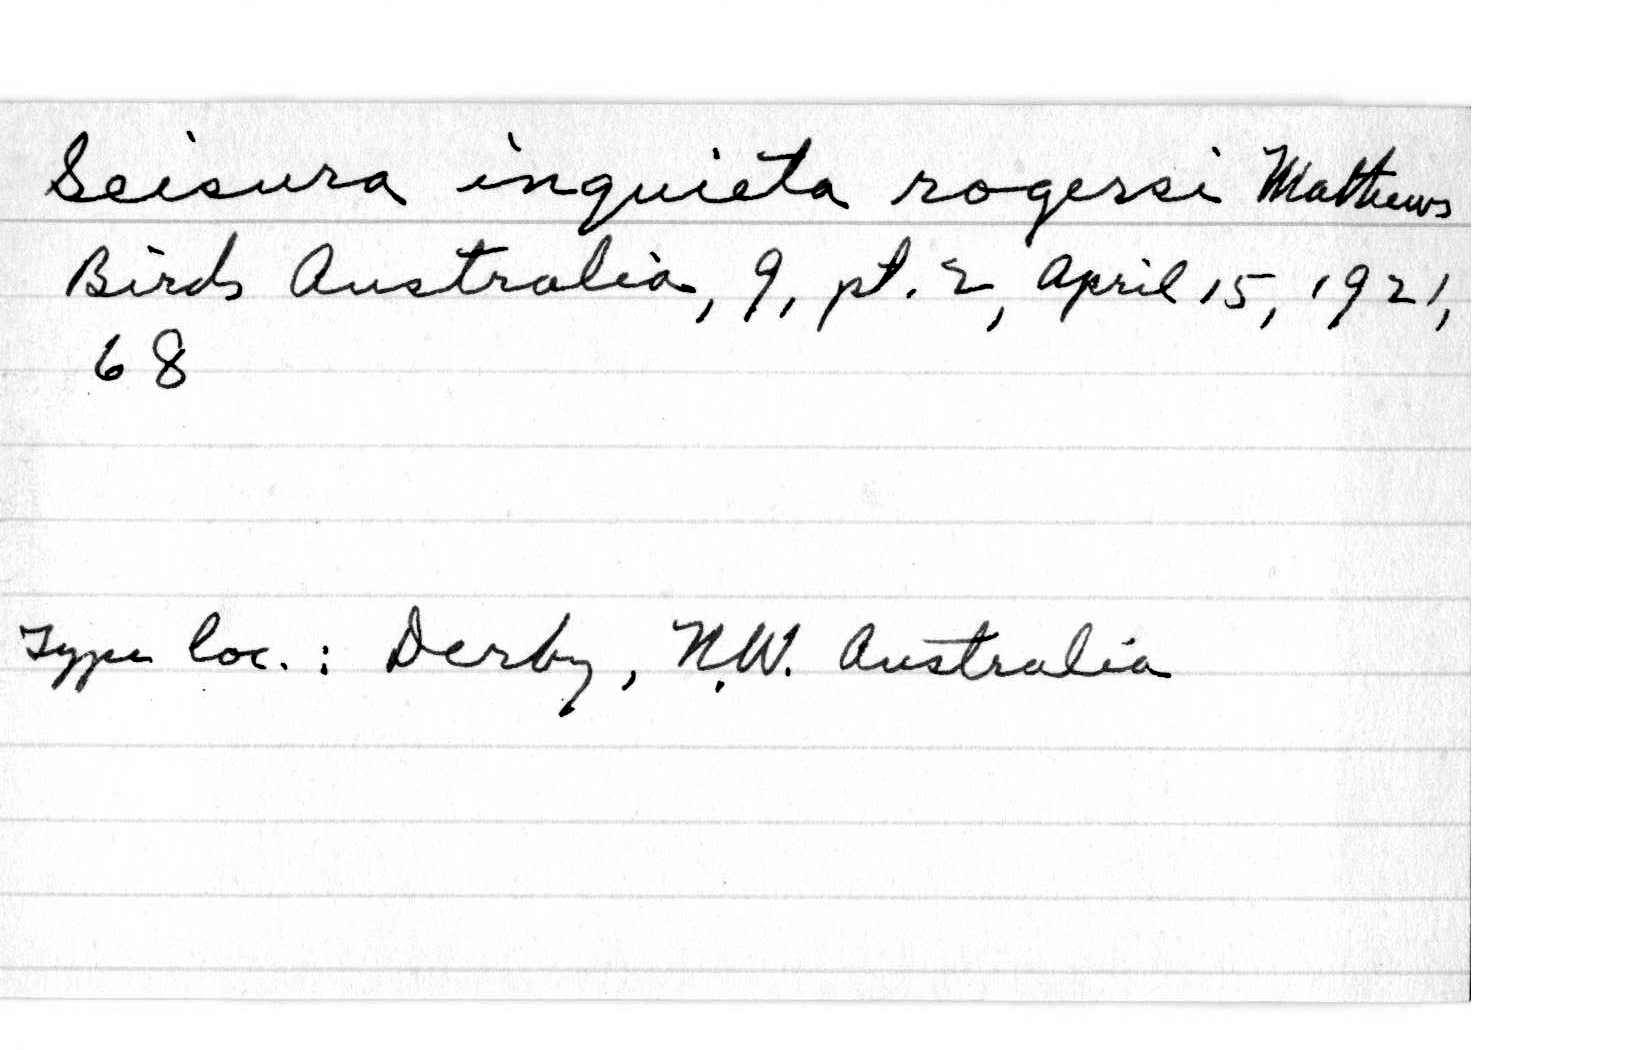 Seisura inquieta rogersi Mathews
Birds Australia, 9, pt. 2, April 15, 1921,
68
Type loc.: Derby, N.W. Australia